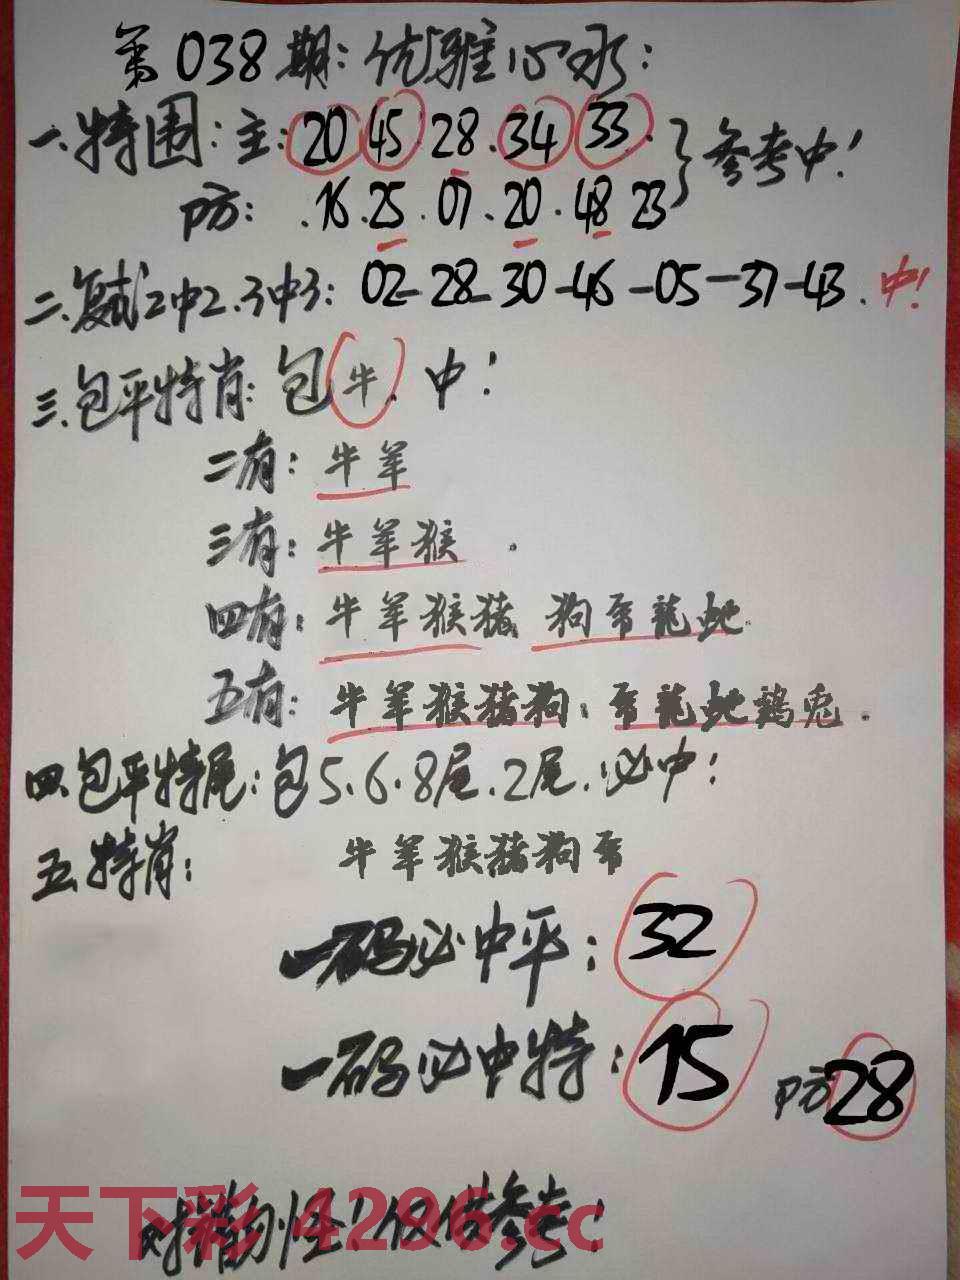 第038期:优雅心水:
一.特围:主:20 45 28.34 33.}参考中!
防:.16.25.07.20.48 23
二.复试2中2.3中3:02-28-30-46-05-37-43.中!
三.包平特肖:包牛.中!
二有:牛羊
三有:牛羊猴.
四有:牛羊猴猪 狗 龙蛇
五有:牛羊猴猪狗. 龙蛇鸡兔.
四.包平特尾:包5.6.8尾.2尾.必中:
五特肖: 牛羊猴猪狗
一码必中平:32
一码必中特:15 防28
仅供参考!
天下彩 4296.cc